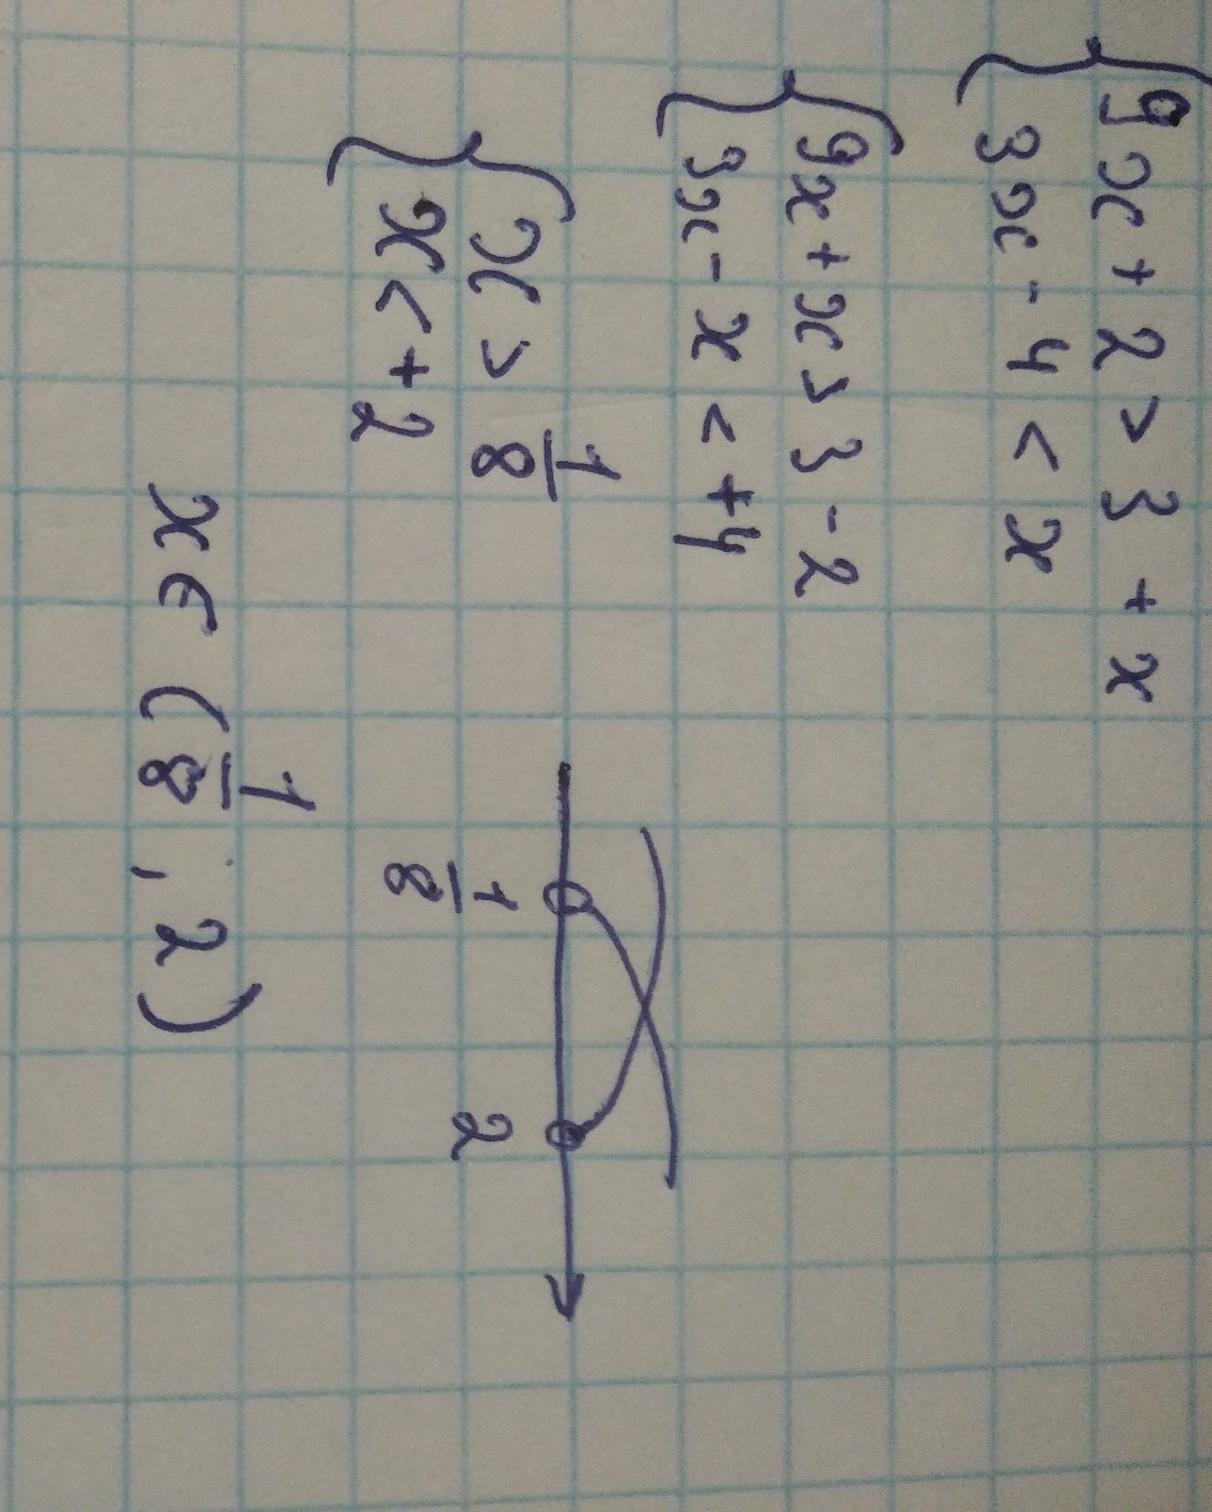 { 9x + 2 > 3 + x
{ 3x - 4 < x
{ 9x + x > 3 - 2
{ 3x - x < +4
{ x > 1/8
{ x < +2
1/8 2
x ∈ (1/8 ; 2)